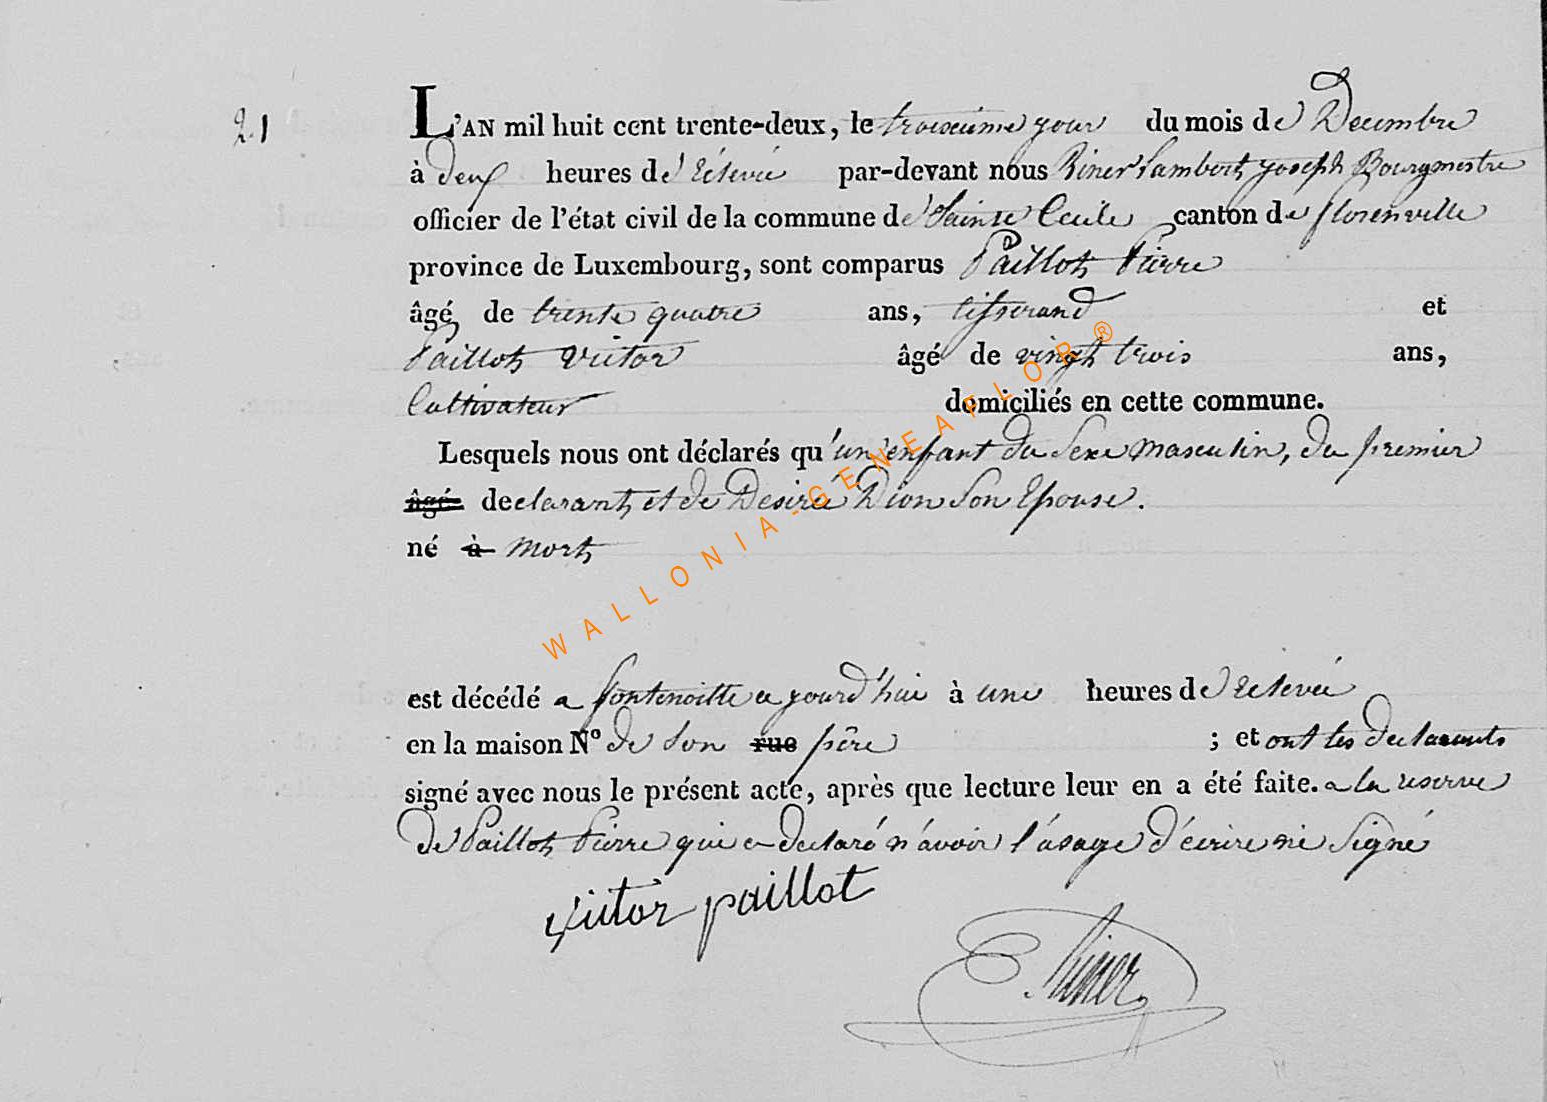 21
L'AN mil huit cent trente-deux, le troisieme jour du mois de Decembre
à deux heures de rélevée par-devant nous Riner Lambert joseph Bourgmestre
officier de l'état civil de la commune de Sainte Cecile canton de florenville
province de Luxembourg, sont comparus Paillot Pierre
âgé de trente quatre ans, tisserand et
Paillot Victor âgé de vingt trois ans,
Cultivateur domiciliés en cette commune.
Lesquels nous ont déclarés qu'un enfant du sexe masculin, du premier
âgé declarant et de Desiré Dion son Epouse.
né à mort
est décédé a fontenoille a jourd'hui à une heures de relevée
en la maison N° de son rue père ; et ont les declarants
signé avec nous le présent acte, après que lecture leur en a été faite. a la reserve
de Paillot Pierre qui a declaré n'avoir l'usage d'écrire ni signé
victor paillot
Riner
WALLONIA-GENEAFLOR®